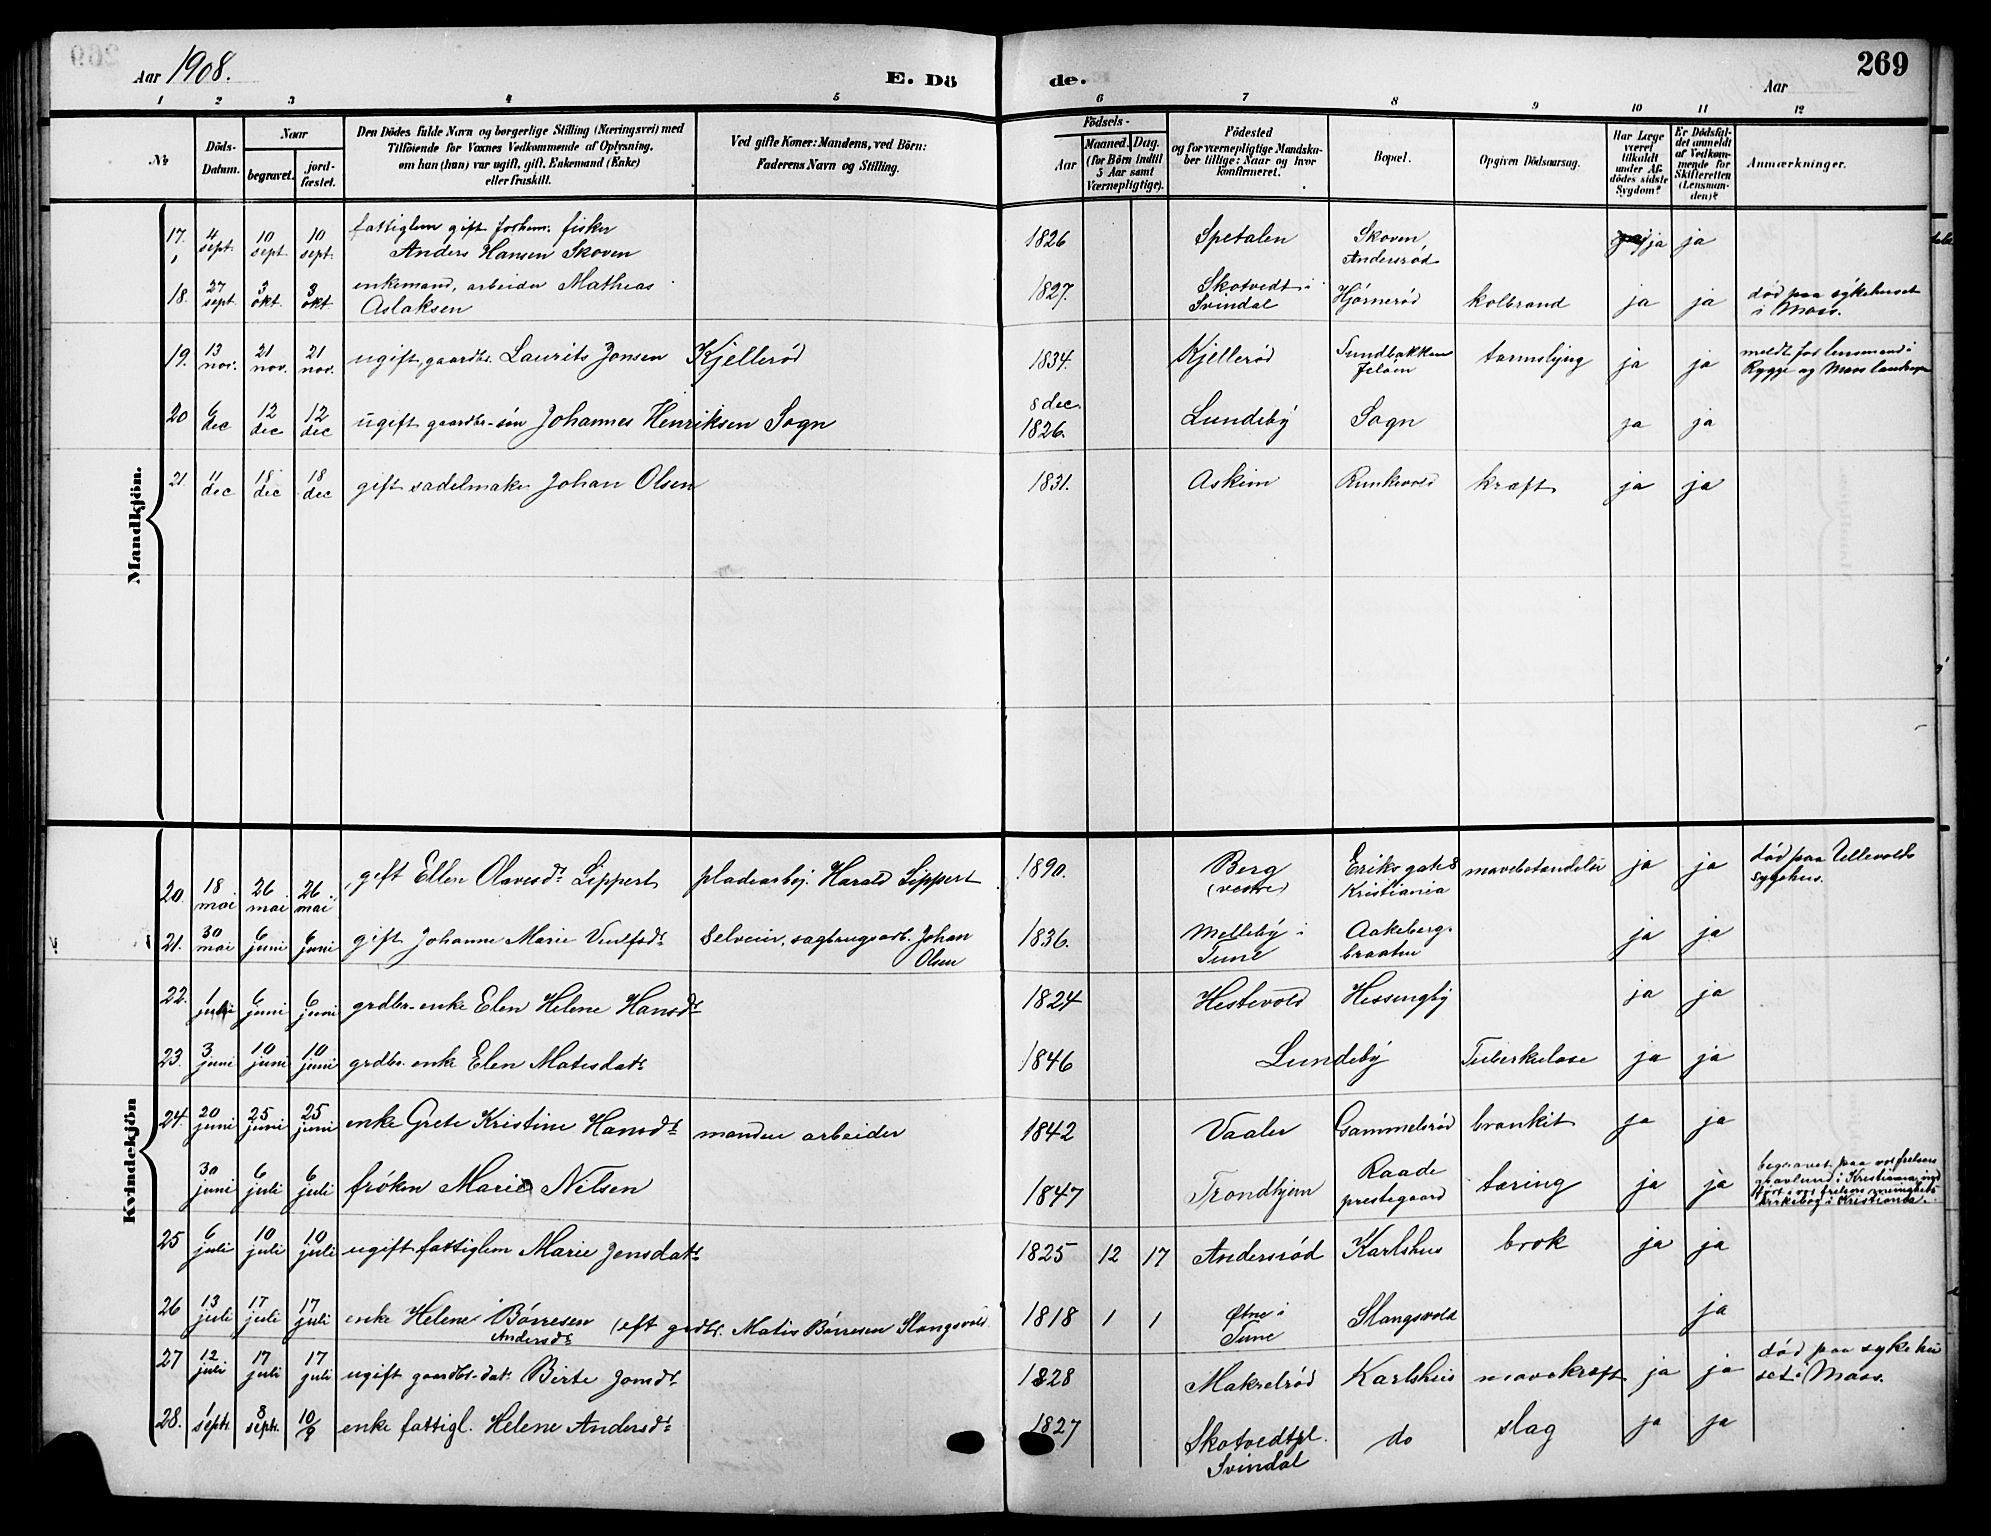 Aar 1908.
E. Dö
de.
Aar
269
1 2 3 4 5 6 7 8 9 10 11 12
No
Döds-Datum.
Naar
begravet.
jord-fæstet.
Den Dödes fulde Navn og borgerlige Stilling (Næringsvei) med
Tilföiende for Voxnes Vedkommende af Oplysning,
om han (hun) var ugift, gift, Enkemand (Enke)
eller fraskilt.
Ved gifte Koner: Mandens, ved Börn:
Faderens Navn og Stilling.
Födsels-
Aar
Maaned. Dag.
(for Börn indtil
5 Aar samt
Værnepligtige).
Födested
og for værnepligtige Mandska-
ber tillige: Naar og hvor
konfirmeret.
Bopæl.
Opgiven Dödsaarsag.
Har Læge
været
tilkaldt
under Af-
dödes sidste
Sygdom?
Er Dödsfal-
det anmeldt
af Vedkom-
mende for
Skifteretten
(Lensman-
den)?
Anmærkninger.
Mandkjön.
17. 4 sept. 10 sept 10 sept. fattiglem gift forhen. fisker Anders Hansen Skoven 1826 Spetalen Skoven Andersrød ja ja
18. 27 sept. 3 okt. 3 okt enkemand, arbeider Mathias Aslaksen 1827. Skotvedt i Svindal Hjørnerød kolbrand ja ja død paa sykehuset i Moss.
19. 13 nov. 21 nov. 21 nov. ugift gaardbr. Laurits Jonsen Kjellerød 1834. Kjellerød Sundbakken tarmslyng ja ja meldt for lensmand i Rygge og Moss landsogn
20 6 dec 12 dec 12 dec ugift gaardbr-søn Johannes Henriksen Sogn 8 dec. 1826. Lundeby Sogn ja ja
21. 11 dec 18 dec 18 dec gift sadelmaker Johan Olsen 1831. Askim Runkevold kræft ja ja
Kvindekjön
20. 18 mai 26 mai 26 mai gift Ellen Olavesdt. Lippert pladearbj. Harald Lippert 1890. Berg (vestre) Eriks gate 8 Kristiania mavebetændelse ja ja død paa Ullevolds sygehus.
21. 30 mai 6 juni 6 juni gift Johanne Marie Vulfsdt. Selveier, sagbrugsarb. Johan Olsen 1836. Melleby i Tune Aakeberg-braaten ja ja
22. 1 juni 6 juni 6 juni grdbr-enke Elen Helene Hansdt. 1824 Hestevold Hessengby ja ja
23. 3 juni 10 juni 10 juni grdbr. enke Elen Matisdatt. 1846 Lundeby Tuberkulose ja ja
24. 20 juni 25 juni 25 juni enke Grete Kristine Hansdt. manden arbeider 1842 Vaaler Gammelsrød bronkit ja ja
30 juni 6 juli 6 juli frøken Marie Nilsen 1847 Trondhjem Raade prestegaard tæring ja ja begravet paa vor frelsers gravlund i Kristiania, indført i vor frelsers menigheds kirkebog i Kristiania.
25 6 juli 10 juli 10 juli ugift fattiglem Marie Jensdatt. 1825 12 17 Andersrød Karlshus brok ja ja
26 13 juli 17 juli 17 juli enke Helene Børresen Andersdt. (eft grdbr. Matis Børresen Slangsvold. 1818 1 1 Øtne i Tune Slangsvold ja
27 12 juli 17 juli 17 juli ugift gaardbr-dat. Birte Jonsdt. 1828 Makrelrød Karlshus mavekræft ja ja død paa sykehuset i Moss.
28. 1 sept. 8 sept. 10/9 enke fattigl. Helene Andersdt. 1827 Skotvedtpl. Svindal do slag ja ja